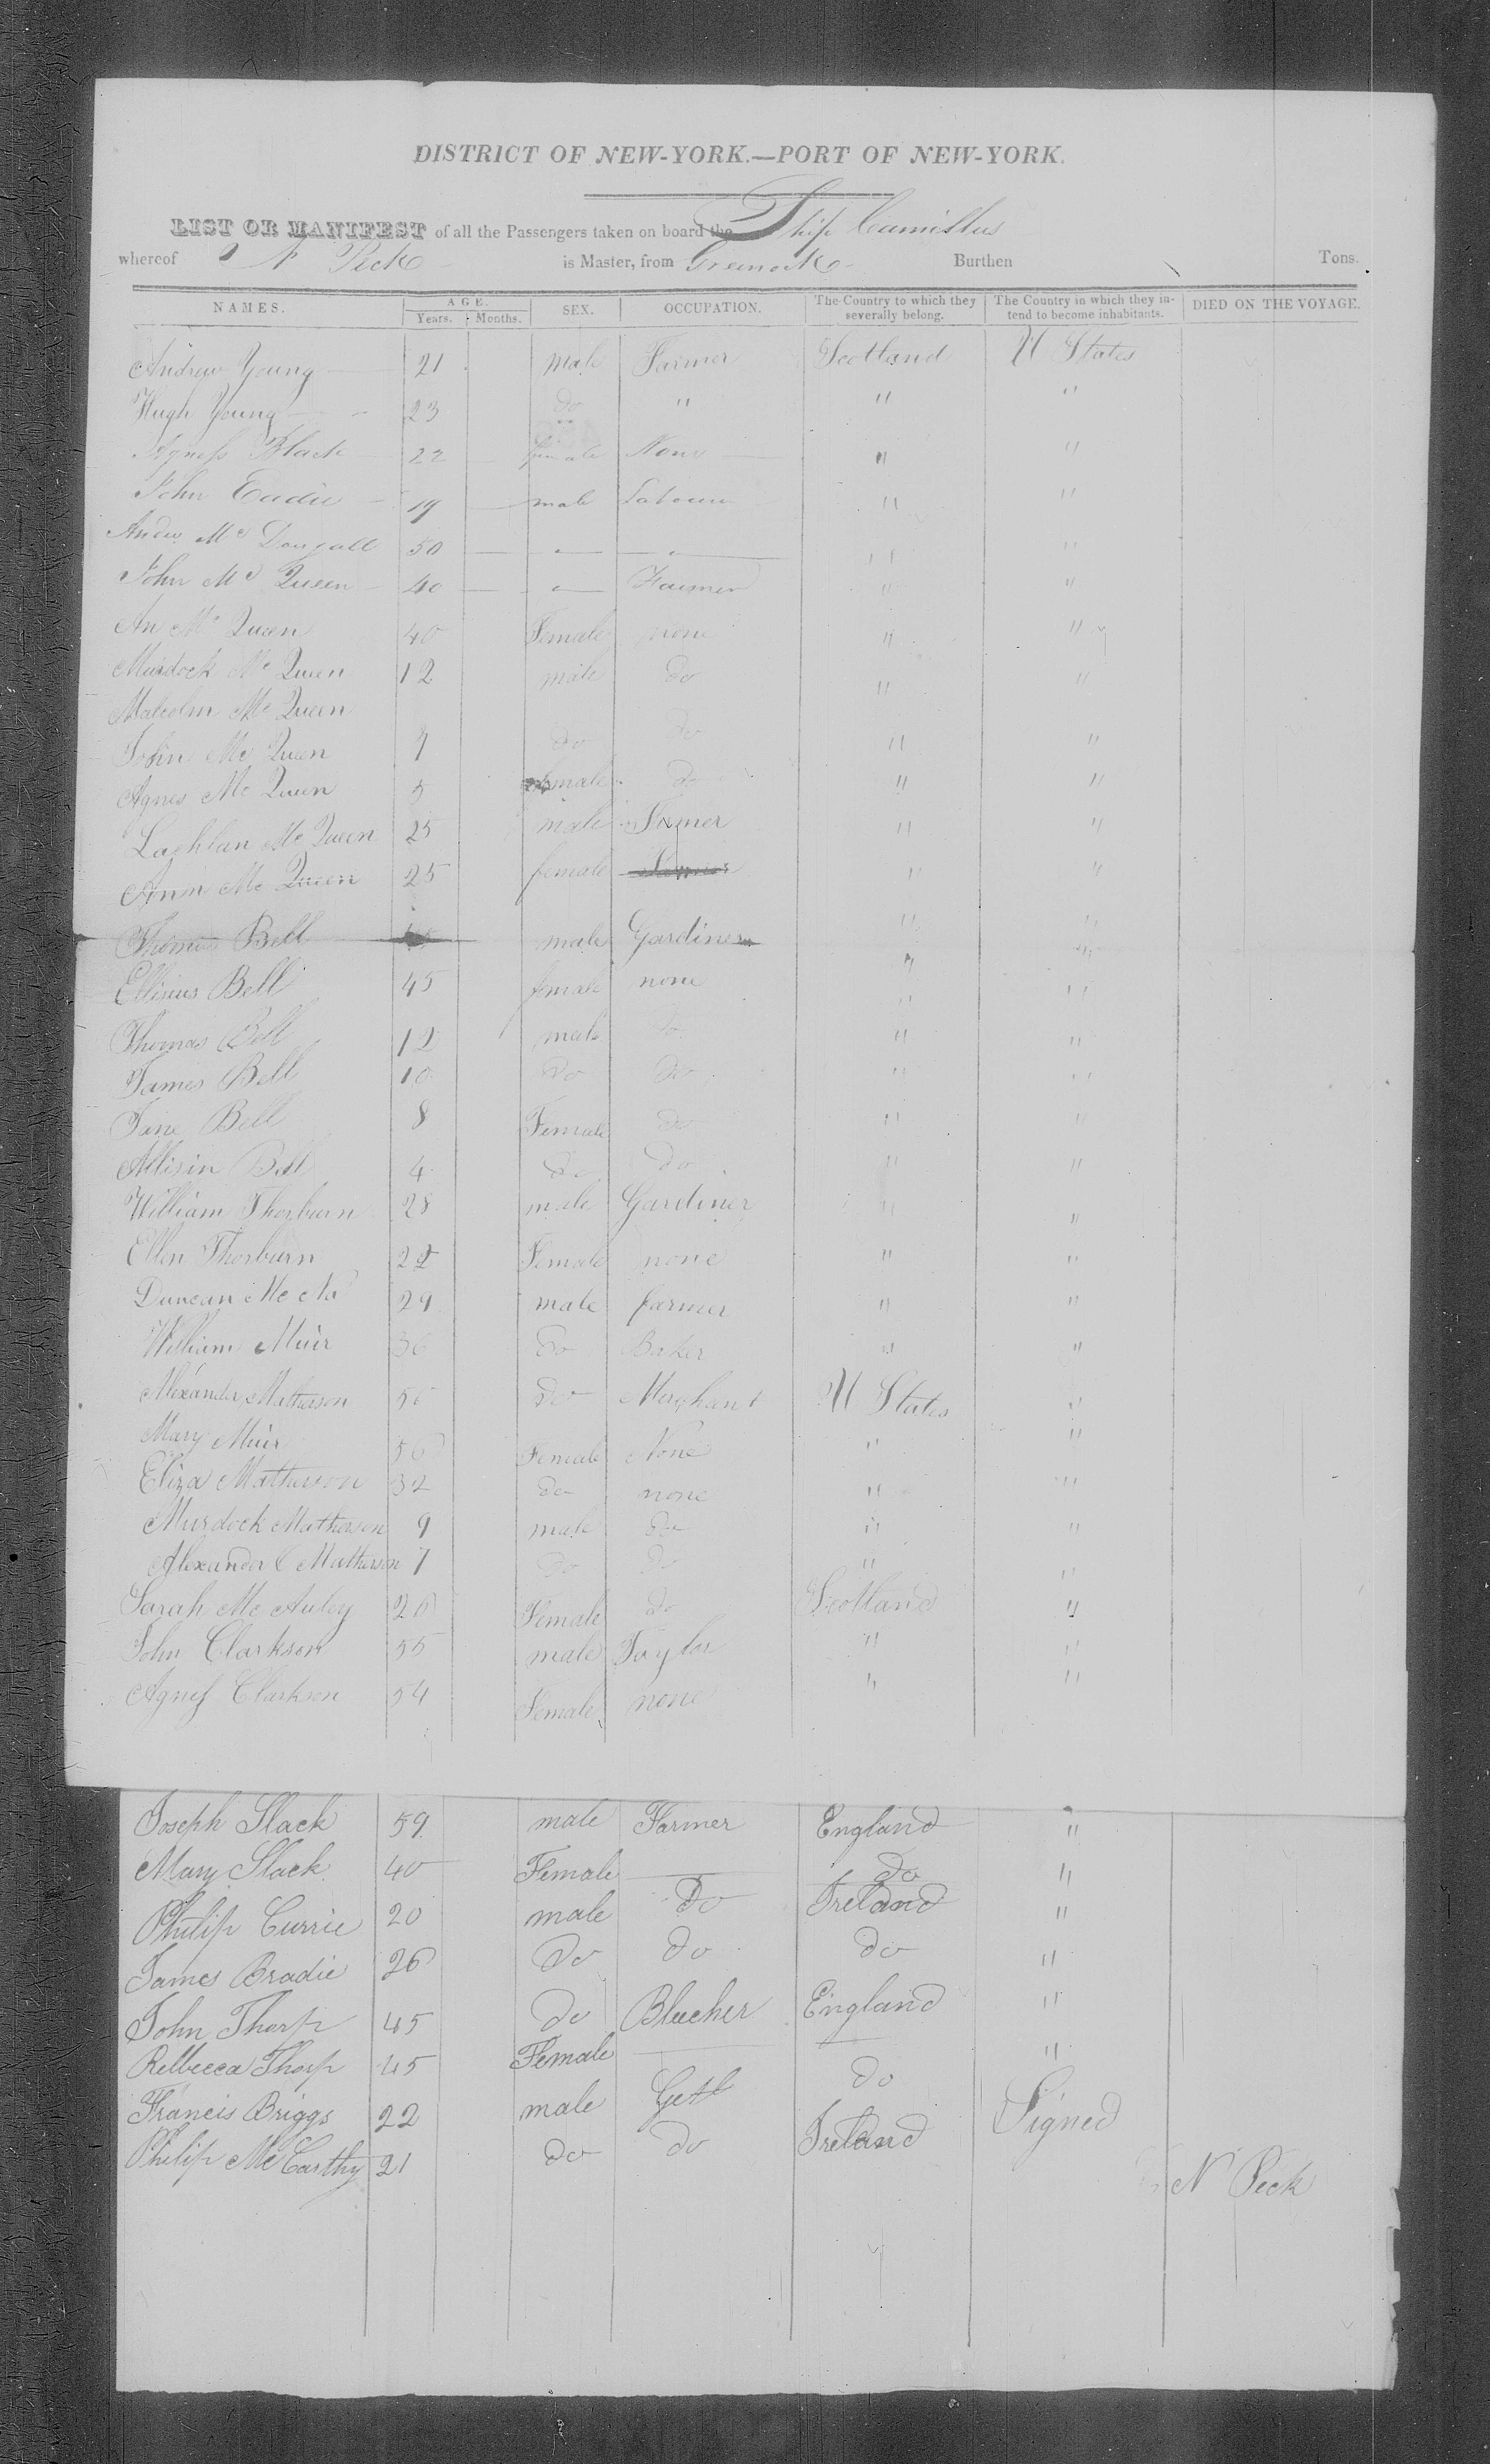 DISTRICT OF NEW-YORK.—PORT OF NEW-YORK.
LIST OR MANIFEST of all the Passengers taken on board the Ship Camillus
whereof N Peck is Master, from Greenock Burthen Tons.
NAMES. AGE. Years. Months. SEX. OCCUPATION. The Country to which they severally belong. The Country in which they intend to become inhabitants. DIED ON THE VOYAGE.
Andrew Young 21 male Farmer Scotland U States
Hugh Young 23 do " " "
Agness Black 22 female None " "
John Eadie 19 male Labourer " "
Andw Mc Dougall 50 " " " "
John Mc Queen 40 " Farmer " "
An Mc Queen 40 Female none " "
Murdock Mc Queen 12 male do " "
Malcolm Mc Queen
John Mc Queen 7 do do " "
Agnes Mc Queen 5 female do " "
Lachlan Mc Queen 25 male Farmer " "
Ann Mc Queen 25 female " "
Thomas Bell male Gardiner " "
Ellinus Bell 45 female none " "
Thomas Bell 12 male do " "
James Bell 10 do do " "
Jane Bell 8 Female do " "
Allisin Bell 4 do do " "
William Thorburn 28 male Gardiner " "
Ellen Thorburn 22 Female none " "
Duncan Mc Na 29 male farmer " "
William Muir 36 do Baker " "
Alexander Matherson 50 do Merchant U States "
Mary Muir 50 Female None " "
Eliza Matherson 32 do none " "
Murdock Matherson 9 male do " "
Alexander C Matherson 7 do do " "
Sarah Mc Auley 26 Female do Scotland "
John Clarkson 55 male Taylor " "
Agness Clarkson 54 Female none " "
Joseph Slack 59 male Farmer England "
Mary Slack 40 Female do "
Philip Currie 20 male Do Ireland "
James Bradie 26 Do do do "
John Thorp 45 Do Blucher England "
Rebbecca Thorp 45 Female "
Francis Briggs 22 male Gett do Signed
Philip Mc Carthy 21 do do Ireland
N Peck